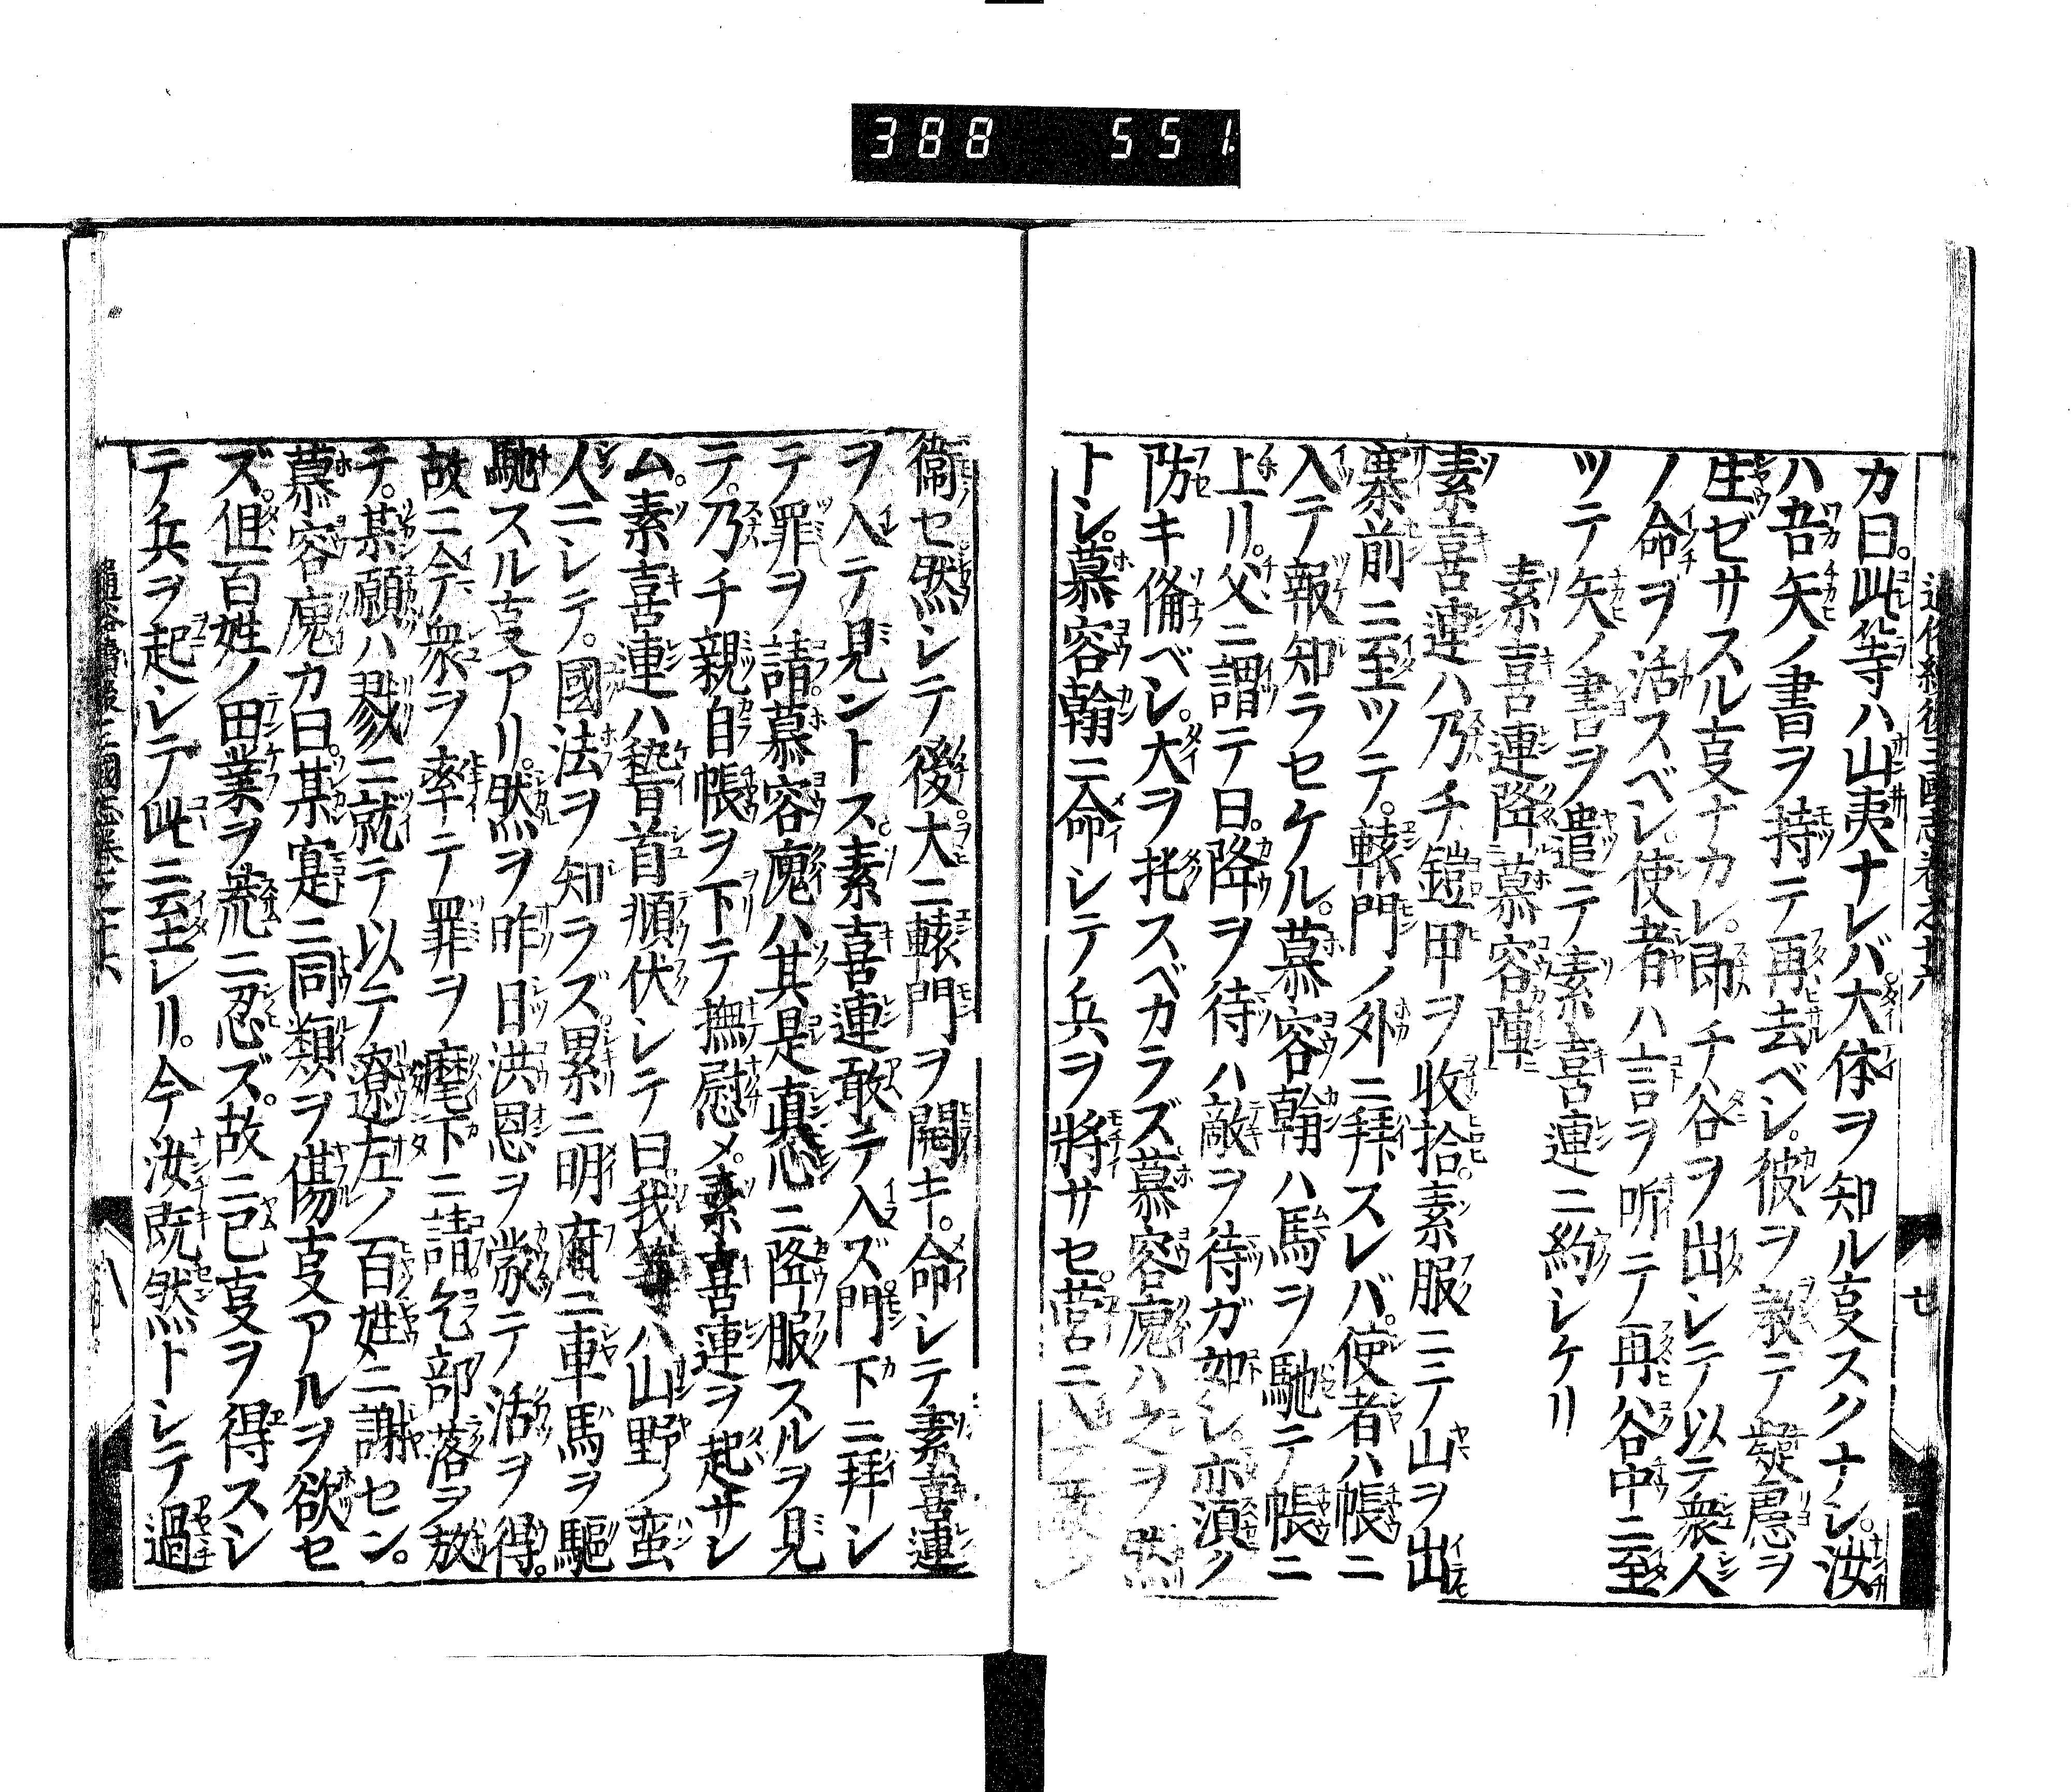 388 551
通俗續後三國志卷之十六
カ曰。此等ハ山夷ナレバ大体ヲ知ル叓スクナシ。汝
ハ吾矢ノ書ヲ持テ再去ベシ。彼ヲ殺テ疑慮ヲ
生ゼサスル叓ナカレ。即チ谷ヲ出シテ以テ衆人
ノ命ヲ活スベシ。使者ハ言ヲ听テ再谷中ニ至
ツテ矢ノ書ヲ遣テ素喜連ニ約シケリ
素喜連降慕容陣
素喜連ハ乃チ鎧甲ヲ收拾。素服ニテ山ヲ出
寨前ニ至ツテ。轅門ノ外ニ拜スレバ。使者ハ帳ニ
入テ報知ラセケル。慕容翰ハ馬ヲ馳テ帳ニ
上リ。父ニ謂テ曰。降ヲ待ハ敵ヲ待ガ如シ。亦須ク
防キ備ベシ。大ヲ托スベカラズ慕容廆ハ之ヲ然
トシ。慕容翰ニ命シテ兵ヲ將サセ。營ニ
衞セ然シテ後大ニ轅門ヲ開キ。命シテ素喜連
ヲ入テ見ントス素喜連敢テ入ズ門下ニ拜シ
テ罪ヲ請。慕容廆ハ其是真心ニ降服スルヲ見
テ。乃チ親自帳ヲ下テ撫慰メ。素喜連ヲ起サシ
ム。素喜連ハ稽首順伏シテ曰我等ハ山野ノ蛮
人ニシテ。國法ヲ知ラズ累ニ明府ニ車馬ヲ驅
馳スル叓アリ。然ヲ昨日洪恩ヲ蒙テ活ヲ得。
故ニ今衆ヲ率テ罪ヲ麾下ニ請。乞部落ヲ放
チ。某願ハ戮ニ就テ以テ遼左ノ百姓ニ謝セン。
慕容廆カ曰。某寔ニ同類ヲ傷叓アルヲ欲セ
ズ。但百姓ノ田業ヲ荒ニ忍ズ。故ニ已叓ヲ得スシ
テ兵ヲ起シテ此ニ至レリ。今汝既然トシテ過
通俗續後三國志卷之十六
八